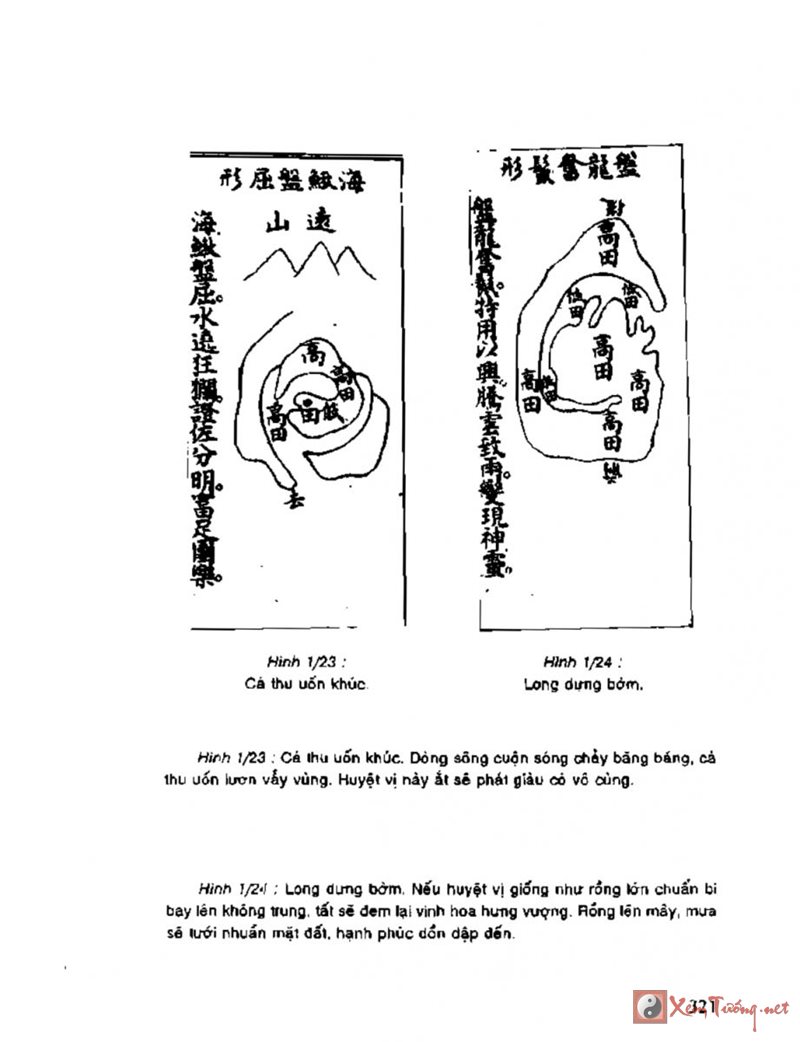 海鰍盤屈形
遠山
海鰍盤屈。水遶狂。證佐分明。富足團樂。
高
高田
高田
低田
去
盤龍奮鬣形
盤龍奮鬣。持用以興。騰雲致雨。變現神靈。
高田
低田
低田
高田
高田
低田
高田
高田
Hình 1/23 :
Cá thu uốn khúc.
Hình 1/24 :
Long dựng bờm.
Hình 1/23 : Cá thu uốn khúc. Dòng sông cuộn sóng chảy băng băng, cá
thu uốn lươn vẫy vùng. Huyệt vị này ắt sẽ phát giàu có vô cùng.
Hình 1/24 : Long dựng bờm. Nếu huyệt vị giống như rồng lớn chuẩn bị
bay lên không trung, tất sẽ đem lại vinh hoa hưng vượng. Rồng lên mây, mưa
sẽ tưới nhuần mặt đất, hạnh phúc dồn dập đến.
321
XemTướng.net